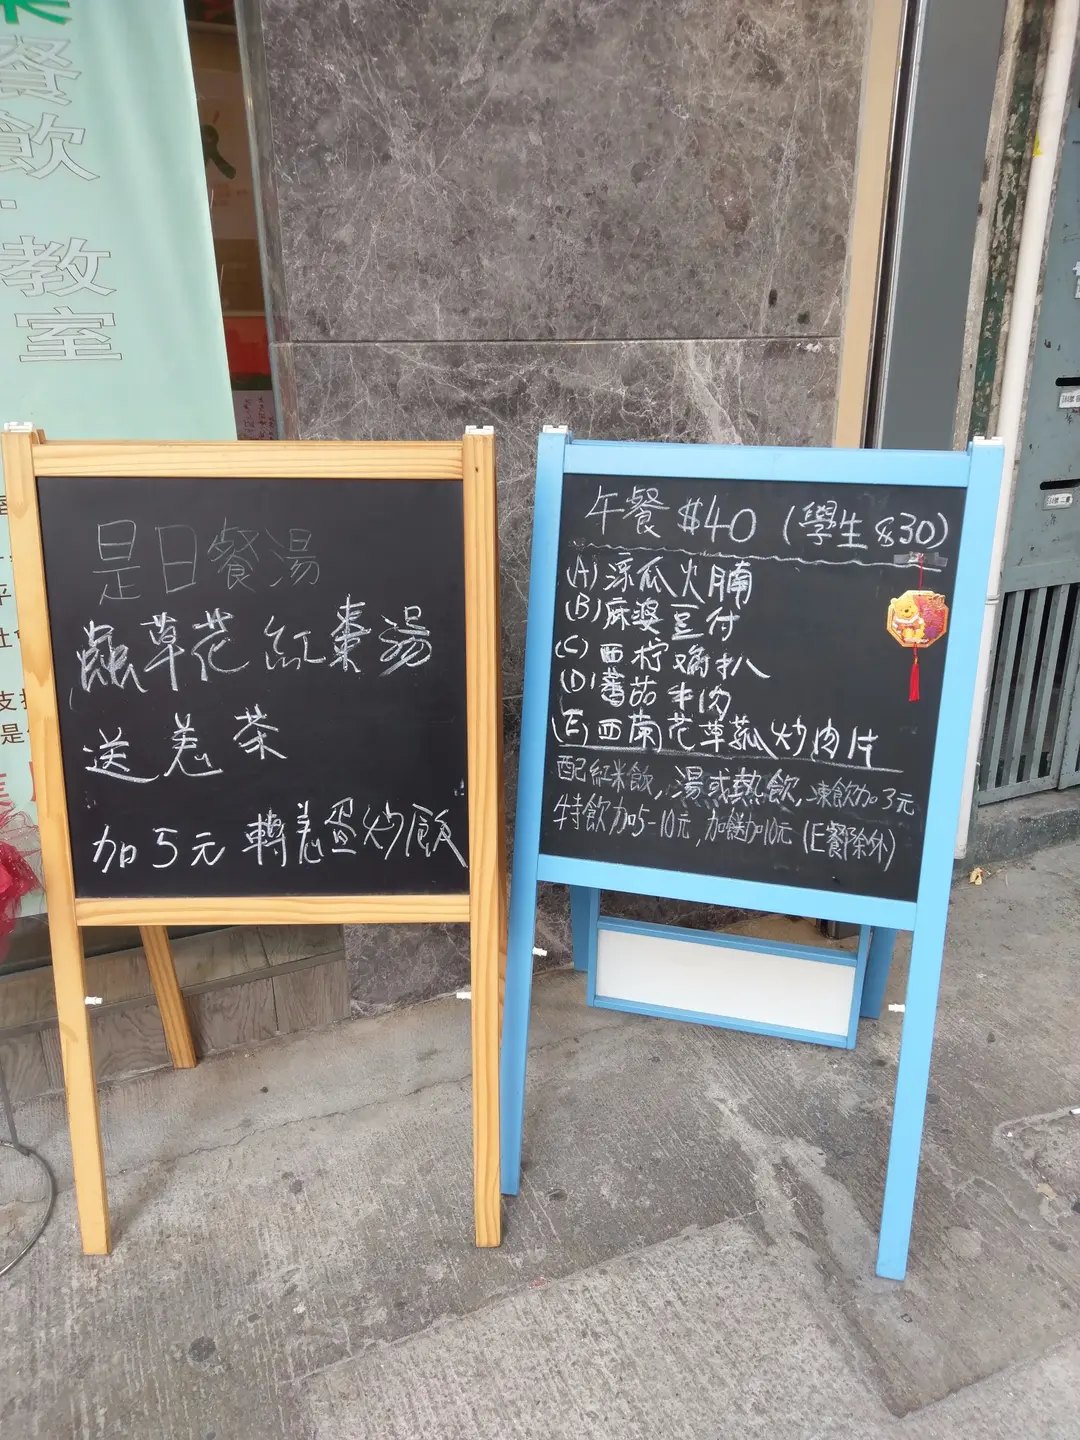 餐
飲
·
教
室
是日餐湯
蟲草花 紅棗湯
送羗茶
加5元 轉羗蛋炒飯
午餐 $40 (學生&30)
(A) 涼瓜火腩
(B) 麻婆豆付
(C) 西柠鸡扒
(D) 蕃茄牛肉
(E) 西南花草菰炒肉片
配紅米飯, 湯或熱飲, 凍飲加3元
特飲加5-10元, 加餸加10元 (E餐除外)